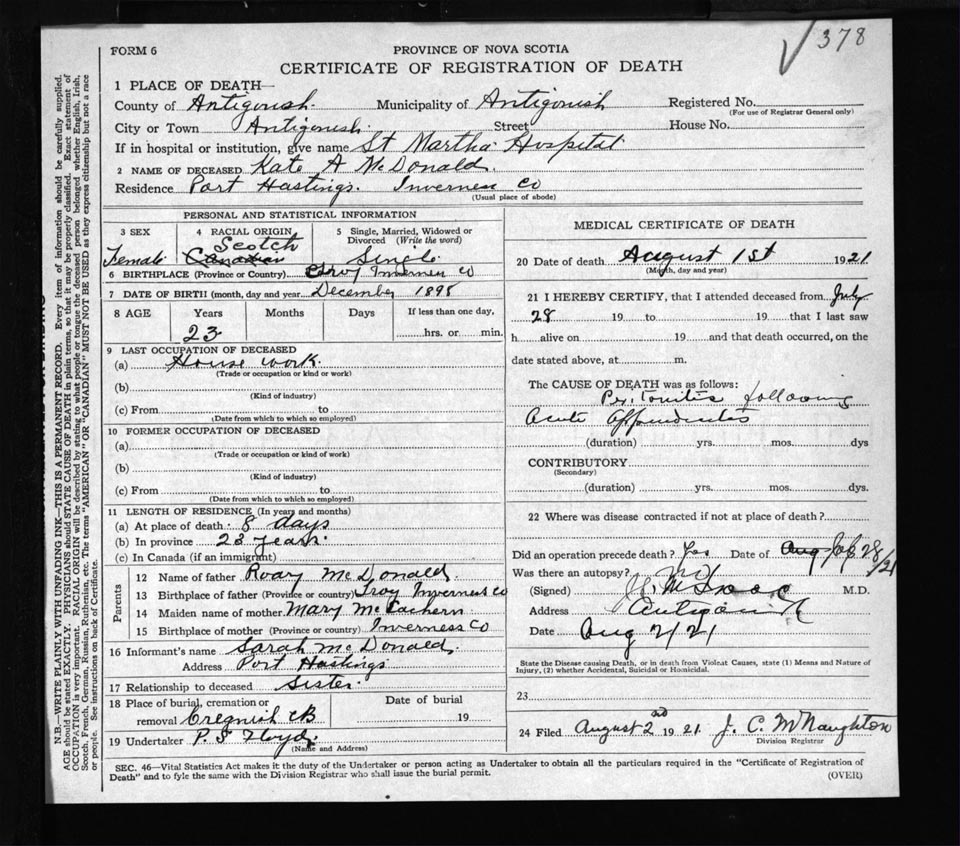 378
FORM 6
PROVINCE OF NOVA SCOTIA
CERTIFICATE OF REGISTRATION OF DEATH
1 PLACE OF DEATH—
County of Antigonish. Municipality of Antigonish Registered No.
(For use of Registrar General only)
City or Town Antigonish. Street House No.
If in hospital or institution, give name St Martha Hospital
2 NAME OF DECEASED Kate A McDonald.
Residence Port Hastings. Inverness Co
(Usual place of abode)
PERSONAL AND STATISTICAL INFORMATION
3 SEX 4 RACIAL ORIGIN 5 Single, Married, Widowed or
Divorced (Write the word)
Scotch
Female Canadian Single
6 BIRTHPLACE (Province or Country) Troy Inverness Co
7 DATE OF BIRTH (month, day and year) December 1898
8 AGE Years Months Days If less than one day,
23 hrs. or min.
9 LAST OCCUPATION OF DECEASED
(a) House work.
(Trade or occupation or kind or work)
(b)
(Kind of industry)
(c) From to
(Date from which to which so employed)
10 FORMER OCCUPATION OF DECEASED
(a)
(Trade or occupation or kind of work)
(b)
(Kind of industry)
(c) From to
(Date from which to which so employed)
11 LENGTH OF RESIDENCE (In years and months)
(a) At place of death 8 days
(b) In province 23 years.
(c) In Canada (if an immigrant)
Parents
12 Name of father Roary McDonald.
13 Birthplace of father (Province or country) Troy Inverness Co
14 Maiden name of mother Mary McEachern
15 Birthplace of mother (Province or country) Inverness Co
16 Informant's name Sarah McDonald.
Address Port Hastings
17 Relationship to deceased Sister.
18 Place of burial, cremation or Date of burial
removal Cregnish CB 19
19 Undertaker P. S Floyd.
(Name and Address)
MEDICAL CERTIFICATE OF DEATH
20 Date of death August 1st 1921
(Month, day and year)
21 I HEREBY CERTIFY, that I attended deceased from July
28 19 to 19 that I last saw
h alive on 19 and that death occurred, on the
date stated above, at m.
The CAUSE OF DEATH was as follows:
Peritonitis following
Acute Appendicitis
(duration) yrs. mos. dys
CONTRIBUTORY
(Secondary)
(duration) yrs. mos. dys.
22 Where was disease contracted if not at place of death?
Did an operation precede death? Yes Date of Aug 28/21
Was there an autopsy? No
(Signed) M.D.
Address
Date Aug 2/21
State the Disease causing Death, or in death from Violent Causes, state (1) Means and Nature of
Injury, (2) whether Accidental, Suicidal or Homicidal.
23
24 Filed August 2nd 1921. J. C. McNaughton
Division Registrar
SEC. 46—Vital Statistics Act makes it the duty of the Undertaker or person acting as Undertaker to obtain all the particulars required in the "Certificate of Registration of
Death" and to fyle the same with the Division Registrar who shall issue the burial permit.
(OVER)
N.B.—WRITE PLAINLY WITH UNFADING INK—THIS IS A PERMANENT RECORD. Every item of information should be carefully supplied.
AGE should be stated EXACTLY. PHYSICIANS should STATE CAUSE OF DEATH in plain terms, so that it may be properly classified. Exact statement of
OCCUPATION is very important. RACIAL ORIGIN will be described by stating to what people or tongue the deceased person belonged whether English, Irish,
Scotch, French, German, Russian, Ruthenian, etc. The terms "AMERICAN" OR "CANADIAN" MUST NOT BE USED as they express citizenship but not a race
or people. See instructions on back of Certificate.